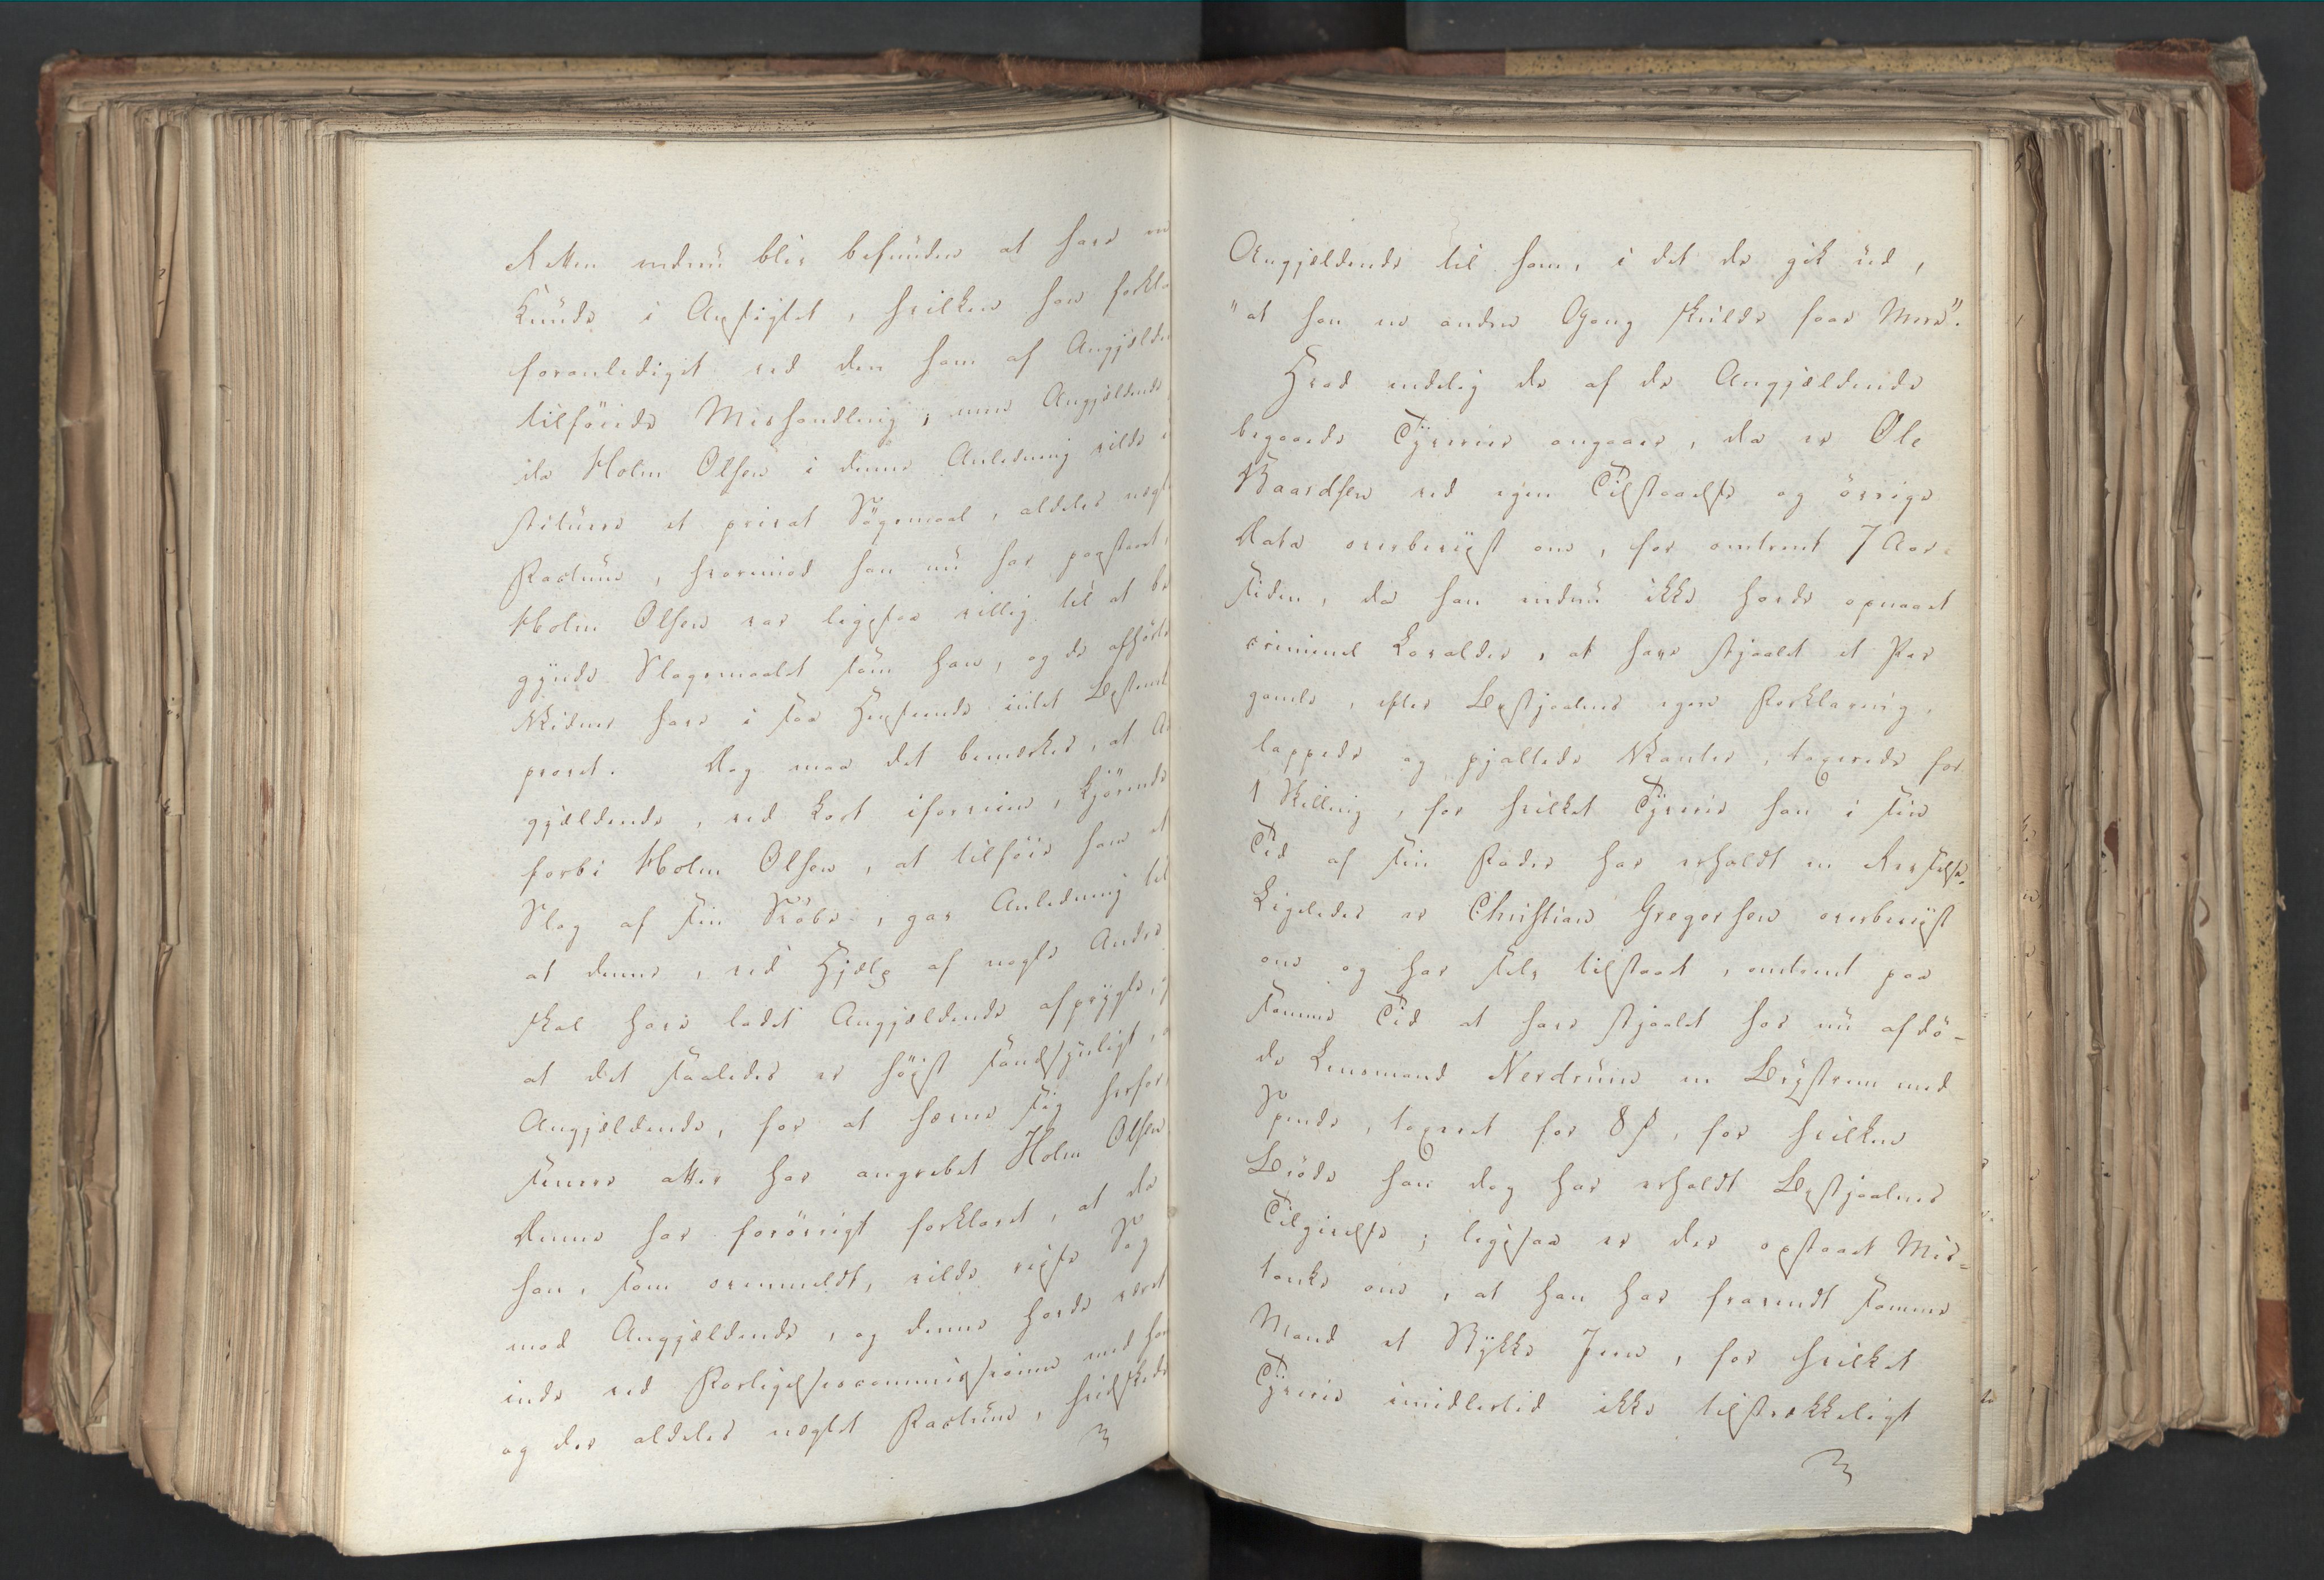 Retten endnu blev befunden at have en
Skunde i Ansigtet, hvilken han forkla
foranlediget ved den ham af Angjælde
tilföiede Mishandling; men Angjældende,
da Holm Olsen i denne Anledning vilde i
stituere et privat Sögsmaal, aldeles nægt
Factum, hvorimod han nu har paastaaet,
Holm Olsen var ligesaa villig til at be
gynde Slagsmaalet som han, og de afhörte
Vidner have i saa Henseende intet Bestemt
provet. Dog maa det bemærkes, at An
gjældende, ved kort iforveien, kjörende
forbi Holm Olsen, at tilföie ham et
Slag af sin Svöbe, gav Anledning til
at denne, ved Hjælp af nogle Andre
skal have ladet Angjældende afprygle, og
at det saaledes er höist sandsynligt, a
Angjældende, for at hevne sig herfor,
senere atter har angrebet Holm Olsen
Denne har forövrigt forklaret, at da
han, som ovenmeldt, vilde reise Sag
mod Angjældende, og denne havde været
inde ved Forligelsescommissionen med ham
og der aldeles nægtet Factum, hvidskede
Angjældende til ham, i det de gik ud,
"at han en anden Gang skulde faae Mere".
Hvad endelig de af de Angjældende
begaaede Tyverier angaaer, da er Ole
Baardsen ved egen Tilstaaelse og övrige
Data overbeviist om, for omtrent 7 Aar
siden, da han endnu ikke havde opnaaet
criminel Lavalder, at have stjaalet et Par
gamle, efter Bestjaalnes egen Forklaring,
lappede og pjaltede Vanter, taxerede for
1 Skilling, for hvilket Tyverie han i sin
Tid af sin Fader har erholdt en Revselse.
Ligeledes er Christian Gregersen overbeviist
om og har selv tilstaaet, omtrent paa
samme Tid at have stjaalet hos nu afdö-
de Lensmand Nerdrum en Bugstrem med
Spende, taxeret for 8 ß, for hvilken
Bröde han dog har erholdt Bestjaalnes
Tilgivelse; ligesaa er der opstaaet Mis-
tanke om, at han har fravendt samme
Mand et Stykke Jern, for hvilket
Tyverie imidlertid ikke tilstrækkeligt